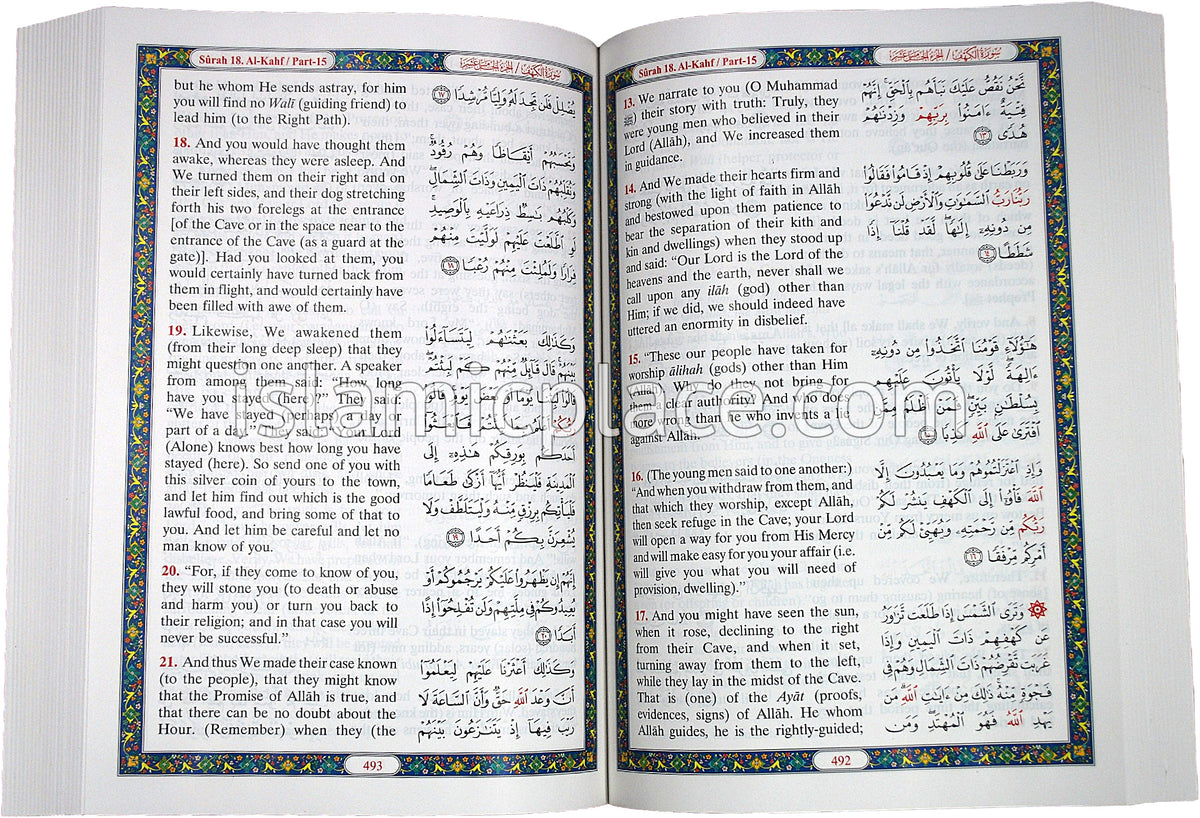 Sûrah 18. Al-Kahf / Part-15
سورة الكهف / الجزء الخامس عشر
13. We narrate to you (O Muhammad
ﷺ) their story with truth: Truly, they
were young men who believed in their
Lord (Allâh), and We increased them
in guidance.
14. And We made their hearts firm and
strong (with the light of faith in Allâh
and bestowed upon them patience to
bear the separation of their kith and
kin and dwellings) when they stood up
and said: “Our Lord is the Lord of the
heavens and the earth, never shall we
call upon any ilâh (god) other than
Him; if we did, we should indeed have
uttered an enormity in disbelief.
15. “These our people have taken for
worship âlihah (gods) other than Him
(Allâh). Why do they not bring for
them a clear authority? And who does
more wrong than he who invents a lie
against Allâh.
16. (The young men said to one another:)
“And when you withdraw from them, and
that which they worship, except Allâh,
then seek refuge in the Cave; your Lord
will open a way for you from His Mercy
and will make easy for you your affair (i.e.
will give you what you will need of
provision, dwelling).”
17. And you might have seen the sun,
when it rose, declining to the right
from their Cave, and when it set,
turning away from them to the left,
while they lay in the midst of the Cave.
That is (one) of the Ayât (proofs,
evidences, signs) of Allâh. He whom
Allâh guides, he is the rightly-guided;
نَّحْنُ نَقُصُّ عَلَيْكَ نَبَأَهُم بِالْحَقِّ إِنَّهُمْ
فِتْيَةٌ ءَامَنُوا بِرَبِّهِمْ وَزِدْنَاهُمْ
هُدًى ١٣
وَرَبَطْنَا عَلَىٰ قُلُوبِهِمْ إِذْ قَامُوا فَقَالُوا
رَبُّنَا رَبُّ السَّمَاوَاتِ وَالْأَرْضِ لَن نَّدْعُوَا
مِن دُونِهِ إِلَاهًا لَّقَدْ قُلْنَا إِذًا
شَطَطًا ١٤
هَاؤُلَاءِ قَوْمُنَا اتَّخَذُوا مِن دُونِهِ
ءَالِهَةً لَّوْلَا يَأْتُونَ عَلَيْهِم
بِسُلْطَانٍ بَيِّنٍ فَمَنْ أَظْلَمُ مِمَّنِ
افْتَرَىٰ عَلَى اللَّهِ كَذِبًا ١٥
وَإِذِ اعْتَزَلْتُمُوهُمْ وَمَا يَعْبُدُونَ إِلَّا
اللَّهَ فَأْوُوا إِلَى الْكَهْفِ يَنشُرْ لَكُمْ
رَبُّكُم مِّن رَّحْمَتِهِ وَيُهَيِّئْ لَكُم مِّنْ
أَمْرِكُم مِّرْفَقًا ١٦
وَتَرَى الشَّمْسَ إِذَا طَلَعَت تَّزَاوَرُ
عَن كَهْفِهِمْ ذَاتَ الْيَمِينِ وَإِذَا
غَرَبَت تَّقْرِضُهُمْ ذَاتَ الشِّمَالِ وَهُمْ فِي
فَجْوَةٍ مِّنْهُ ذَٰلِكَ مِنْ ءَايَاتِ اللَّهِ مَن
يَهْدِ اللَّهُ فَهُوَ الْمُهْتَدِ وَمَن
492
Sûrah 18. Al-Kahf / Part-15
سورة الكهف / الجزء الخامس عشر
but he whom He sends astray, for him
you will find no Walî (guiding friend) to
lead him (to the Right Path).
18. And you would have thought them
awake, whereas they were asleep. And
We turned them on their right and on
their left sides, and their dog stretching
forth his two forelegs at the entrance
[of the Cave or in the space near to the
entrance of the Cave (as a guard at the
gate)]. Had you looked at them, you
would certainly have turned back from
them in flight, and would certainly have
been filled with awe of them.
19. Likewise, We awakened them
(from their long deep sleep) that they
might question one another. A speaker
from among them said: “How long
have you stayed (here)?” They said:
“We have stayed (perhaps) a day or
part of a day.” They said: “Your Lord
(Alone) knows best how long you have
stayed (here). So send one of you with
this silver coin of yours to the town,
and let him find out which is the good
lawful food, and bring some of that to
you. And let him be careful and let no
man know of you.
20. “For, if they come to know of you,
they will stone you (to death or abuse
and harm you) or turn you back to
their religion; and in that case you will
never be successful.”
21. And thus We made their case known
(to the people), that they might know
that the Promise of Allâh is true, and
that there can be no doubt about the
Hour. (Remember) when they (the
يُضْلِلْ فَلَن تَجِدَ لَهُ وَلِيًّا مُّرْشِدًا ١٧
وَتَحْسَبُهُمْ أَيْقَاظًا وَهُمْ رُقُودٌ
وَنُقَلِّبُهُمْ ذَاتَ الْيَمِينِ وَذَاتَ الشِّمَالِ
وَكَلْبُهُم بَاسِطٌ ذِرَاعَيْهِ بِالْوَصِيدِ
لَوِ اطَّلَعْتَ عَلَيْهِمْ لَوَلَّيْتَ مِنْهُمْ
فِرَارًا وَلَمُلِئْتَ مِنْهُمْ رُعْبًا ١٨
وَكَذَٰلِكَ بَعَثْنَاهُمْ لِيَتَسَاءَلُوا
بَيْنَهُمْ قَالَ قَائِلٌ مِّنْهُمْ كَمْ لَبِثْتُمْ
قَالُوا لَبِثْنَا يَوْمًا أَوْ بَعْضَ يَوْمٍ قَالُوا
رَبُّكُمْ أَعْلَمُ بِمَا لَبِثْتُمْ فَابْعَثُوا
أَحَدَكُم بِوَرِقِكُمْ هَٰذِهِ إِلَى
الْمَدِينَةِ فَلْيَنظُرْ أَيُّهَا أَزْكَىٰ طَعَامًا
فَلْيَأْتِكُم بِرِزْقٍ مِّنْهُ وَلْيَتَلَطَّفْ وَلَا
يُشْعِرَنَّ بِكُمْ أَحَدًا ١٩
إِنَّهُمْ إِن يَظْهَرُوا عَلَيْكُمْ يَرْجُمُوكُمْ أَوْ
يُعِيدُوكُمْ فِي مِلَّتِهِمْ وَلَن تُفْلِحُوا إِذًا
أَبَدًا ٢٠
وَكَذَٰلِكَ أَعْثَرْنَا عَلَيْهِمْ لِيَعْلَمُوا
أَنَّ وَعْدَ اللَّهِ حَقٌّ وَأَنَّ السَّاعَةَ لَا
رَيْبَ فِيهَا إِذْ يَتَنَازَعُونَ بَيْنَهُمْ
493
islamicplace.com